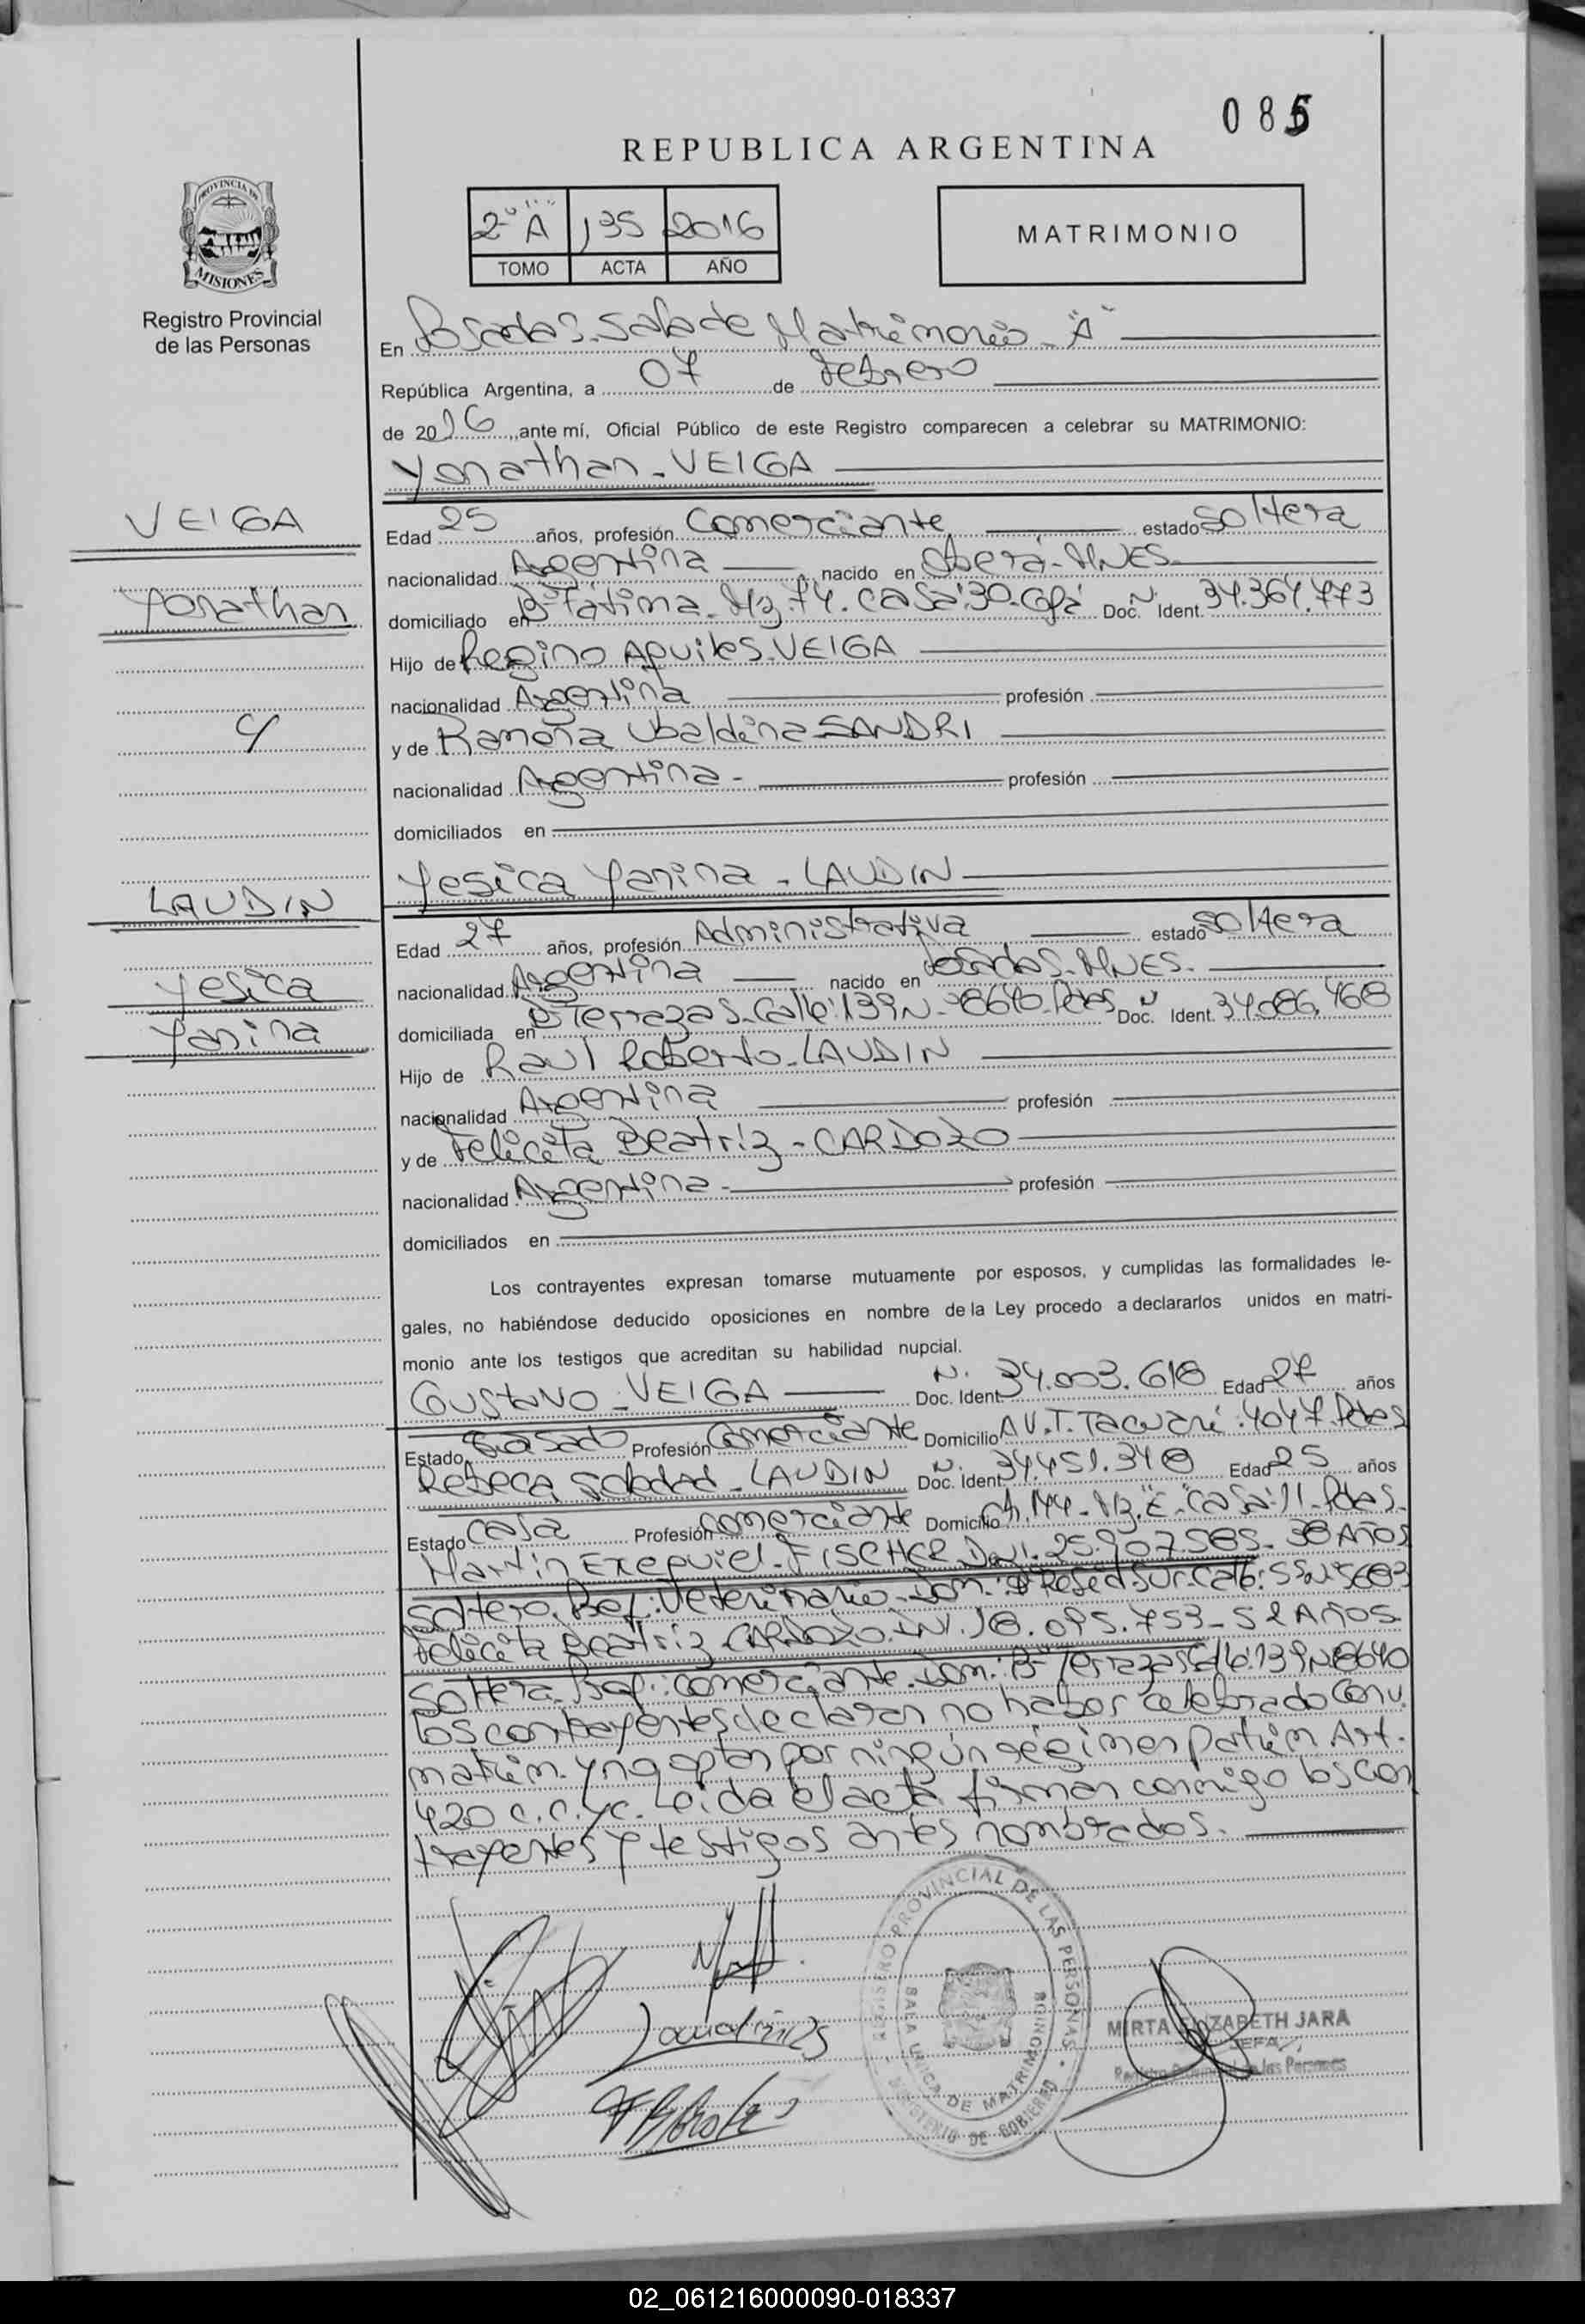 085
REPUBLICA ARGENTINA
PROVINCIA DE
MISIONES
Registro Provincial
de las Personas
2º "A" 135 2016
TOMO ACTA AÑO
MATRIMONIO
En Posadas. Sala de Matrimonio - "A"
República Argentina, a 07 de Febrero
de 2016, ante mí, Oficial Público de este Registro comparecen a celebrar su MATRIMONIO:
Yonathan - VEIGA
VEIGA
Yonathan
c/
LAUDIN
Yesica
Yanina
Edad 25 años, profesión Comerciante estado Soltera
nacionalidad Argentina nacido en Oberá - MNES
domiciliado en Bº Fátima - Mz. 74. Casa: 30 - Gpá Doc. Nº Ident. 34.364.773
Hijo de Regino Aquiles - VEIGA
nacionalidad Argentina profesión
y de Ramona Ubaldina SANDRI
nacionalidad Argentina - profesión
domiciliados en
Yesica Yanina - LAUDIN
Edad 27 años, profesión Administrativa estado Soltera
nacionalidad Argentina nacido en Posadas - MNES.
domiciliada en Bº Terrazas - Calle: 139 Nº 8640 - Pdas Doc. Nº Ident. 34.086.468
Hijo de Raul Roberto - LAUDIN
nacionalidad Argentina profesión
y de Felicita Beatriz - CARDOZO
nacionalidad Argentina - profesión
domiciliados en
Los contrayentes expresan tomarse mutuamente por esposos, y cumplidas las formalidades le-
gales, no habiéndose deducido oposiciones en nombre de la Ley procedo a declararlos unidos en matri-
monio ante los testigos que acreditan su habilidad nupcial.
Gustavo - VEIGA Doc. Ident. Nº 34.003.618 Edad 27 años
Estado Casado Profesión Comerciante Domicilio AV. T. Tacuarí: 4047 Pdas
Rebeca Soledad - LAUDIN Doc. Ident. Nº 34.451.348 Edad 25 años
Estado Casa Profesión Comerciante Domicilio Ch. 144 - Mz. "E" - Casa: 11 - Pdas -
Martín Exequiel - FISCHER DNI. 25.907.585 - 38 AÑOS
Soltero. Prof.: Veterinario - Dom.: Bº Sur - Calle: 55 Nº 5683
Felicita Beatriz - CARDOZO. DNI. 18.095.753 - 52 AÑOS.
Soltera. Prof.: Comerciante. Dom.: Bº Terrazas Calle 139 Nº 8640
los contrayentes declaran no haber celebrado Conv.
matrim. y no optan por ningún régimen patrim Art.
420 C.C.yC. Leida el acta firman conmigo los Con
trayentes y testigos antes nombrados.
REGISTRO PROVINCIAL DE LAS PERSONAS
SALA UNICA DE MATRIMONIOS
MINISTERIO DE GOBIERNO
MIRTA ELIZABETH JARA
JEFA
Registro Provincial de las Personas
02_061216000090-018337